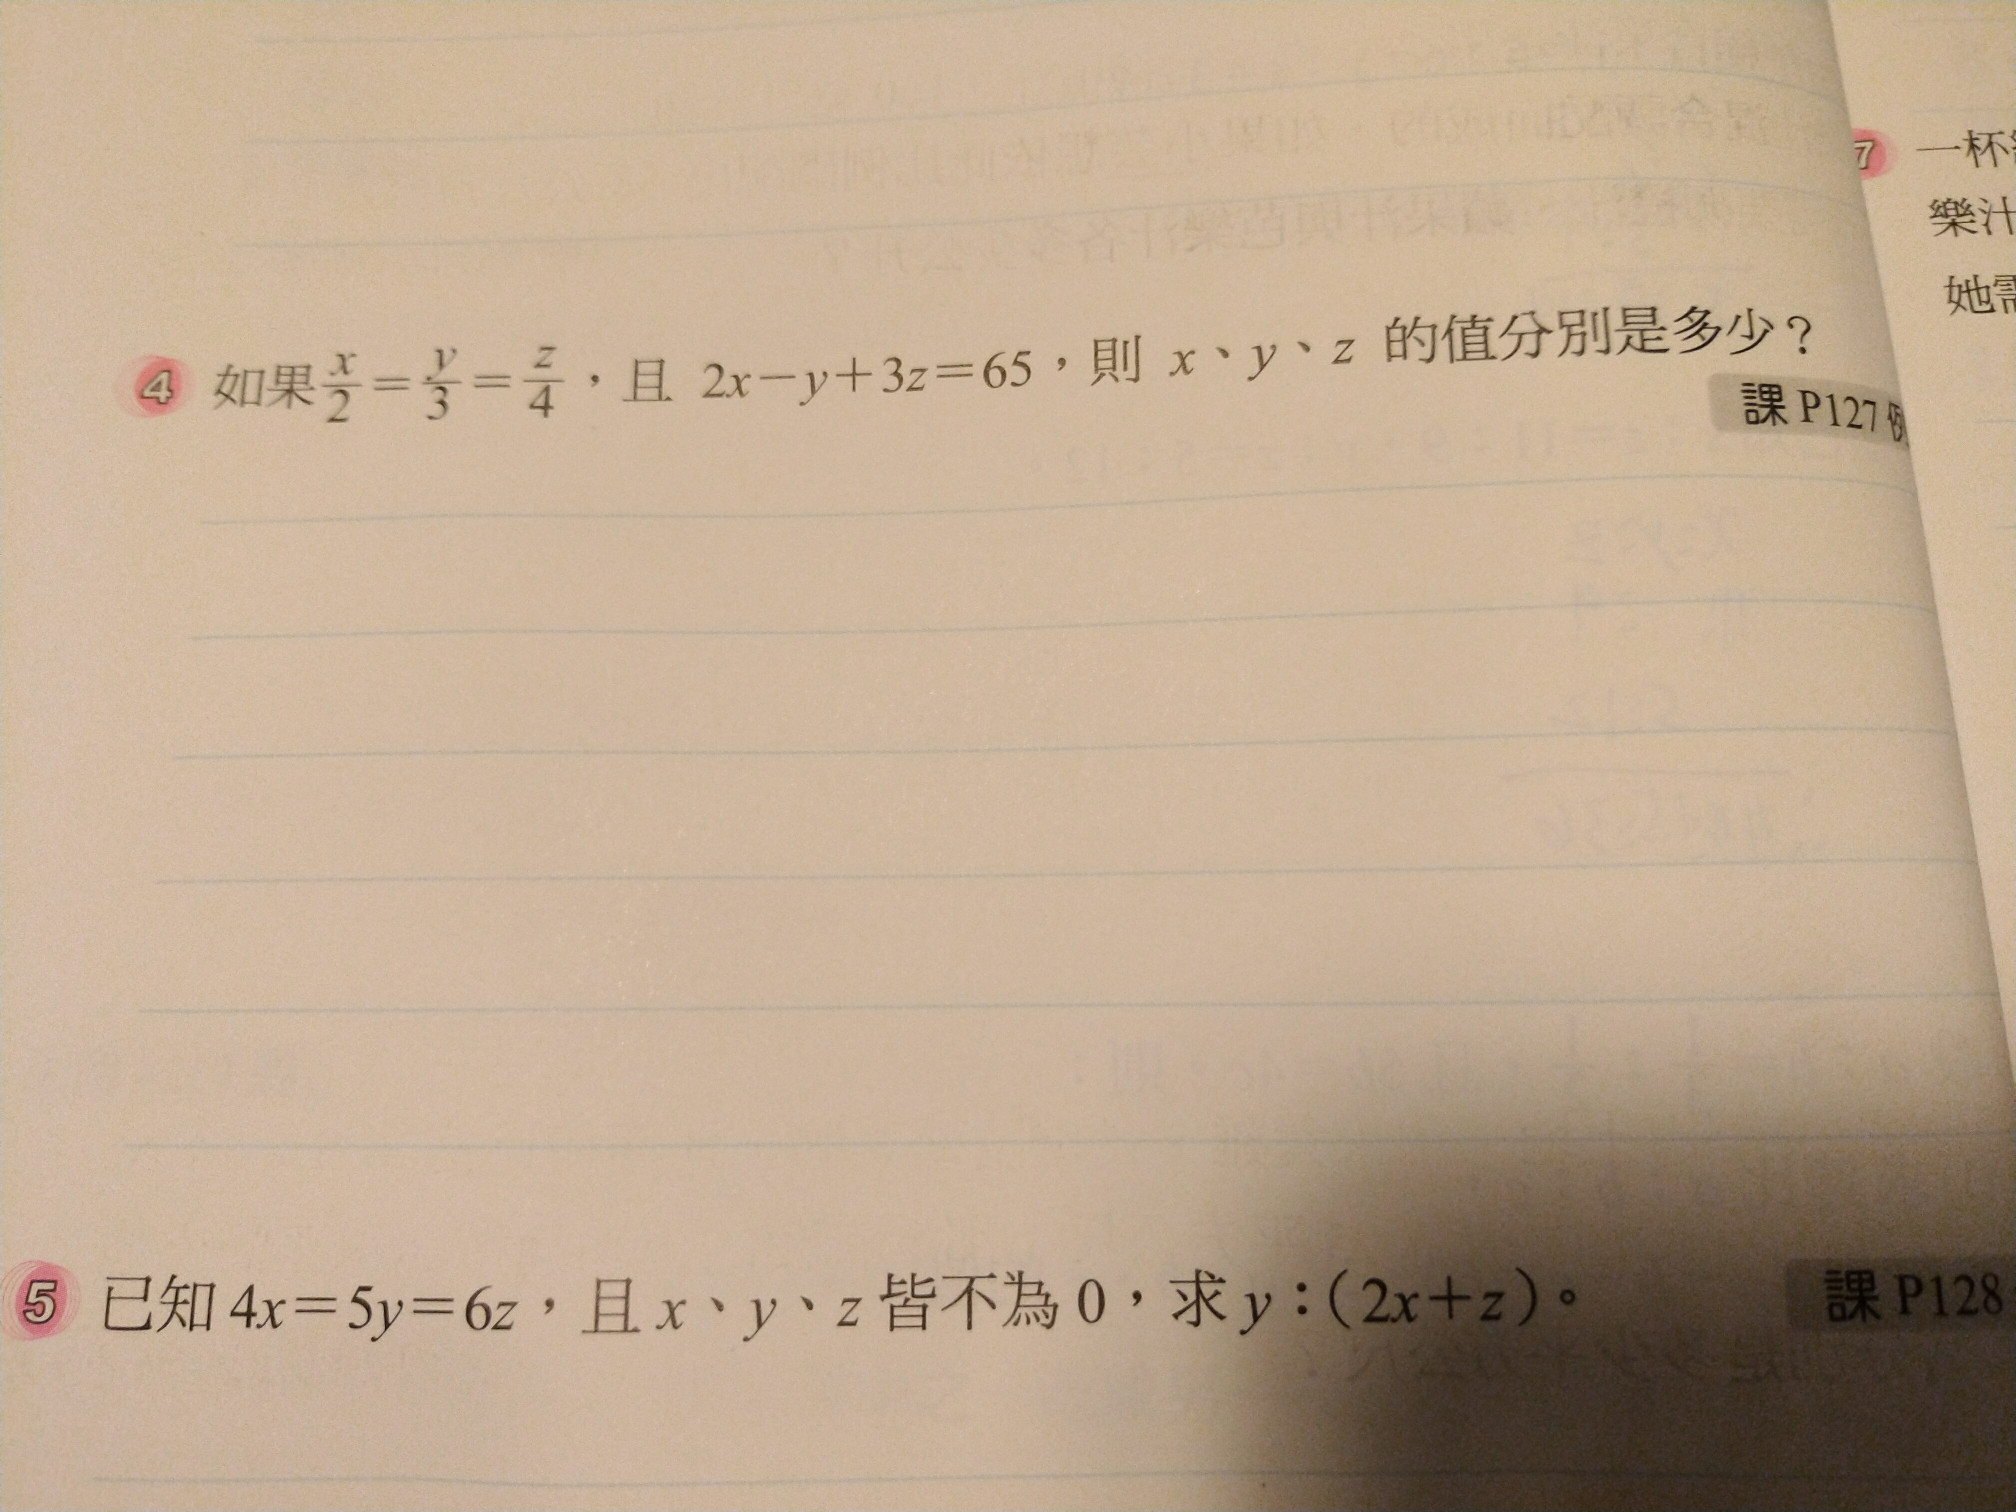 4 如果 x/2 = y/3 = z/4，且 2x－y＋3z＝65，則 x、y、z 的值分別是多少？
課 P127
5 已知 4x＝5y＝6z，且 x、y、z 皆不為 0，求 y：(2x＋z)。
課 P128
7 一杯
樂汁
她需